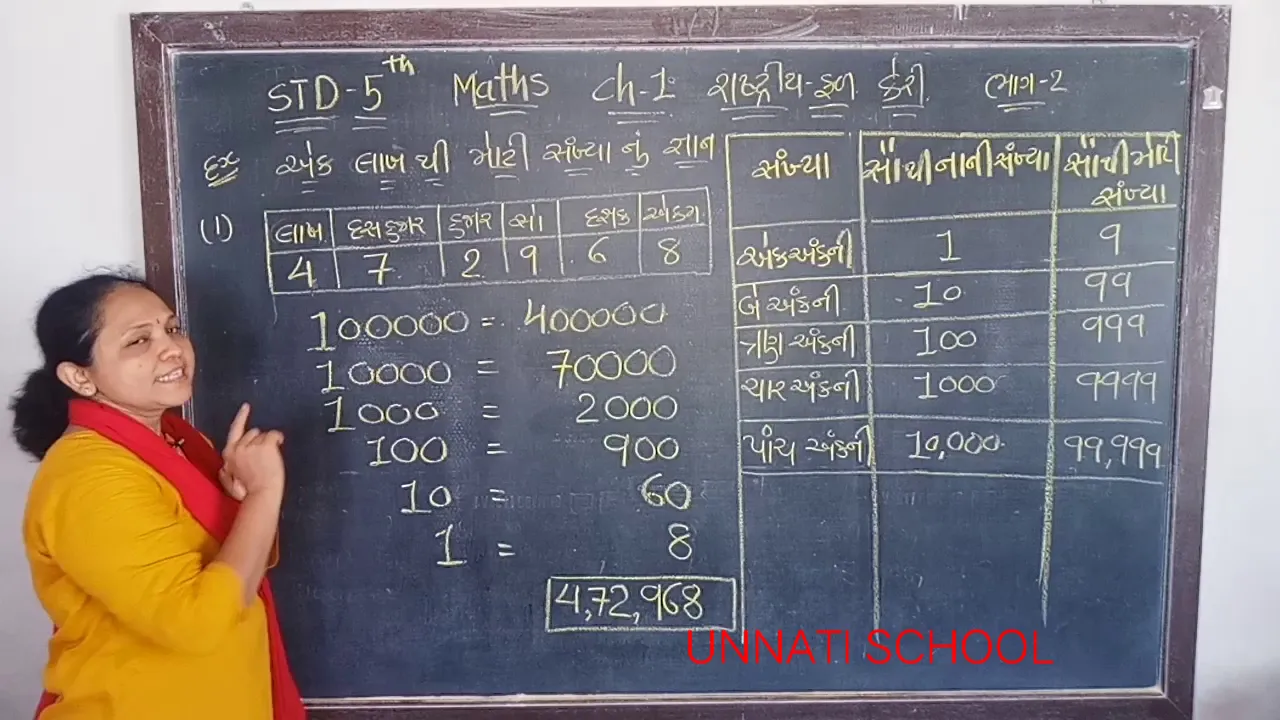 STD-5th Maths Ch-1: રાષ્ટ્રીય-ફળ કેરી. ભાગ-2
દા.ત એક લાખ થી મોટી સંખ્યા નું જ્ઞાન
(1)
લાખ દસ હજાર હજાર સો દશક એકમ
4 7 2 9 6 8
100000 = 400000
10000 = 70000
1000 = 2000
100 = 900
10 = 60
1 = 8
4,72,968
સંખ્યા સૌથી નાની સંખ્યા સૌથી મોટી સંખ્યા
એક અંકની 1 9
બે અંકની 10 99
ત્રણ અંકની 100 999
ચાર અંકની 1000 9999
પાંચ અંકની 10,000 99,999
UNNATI SCHOOL